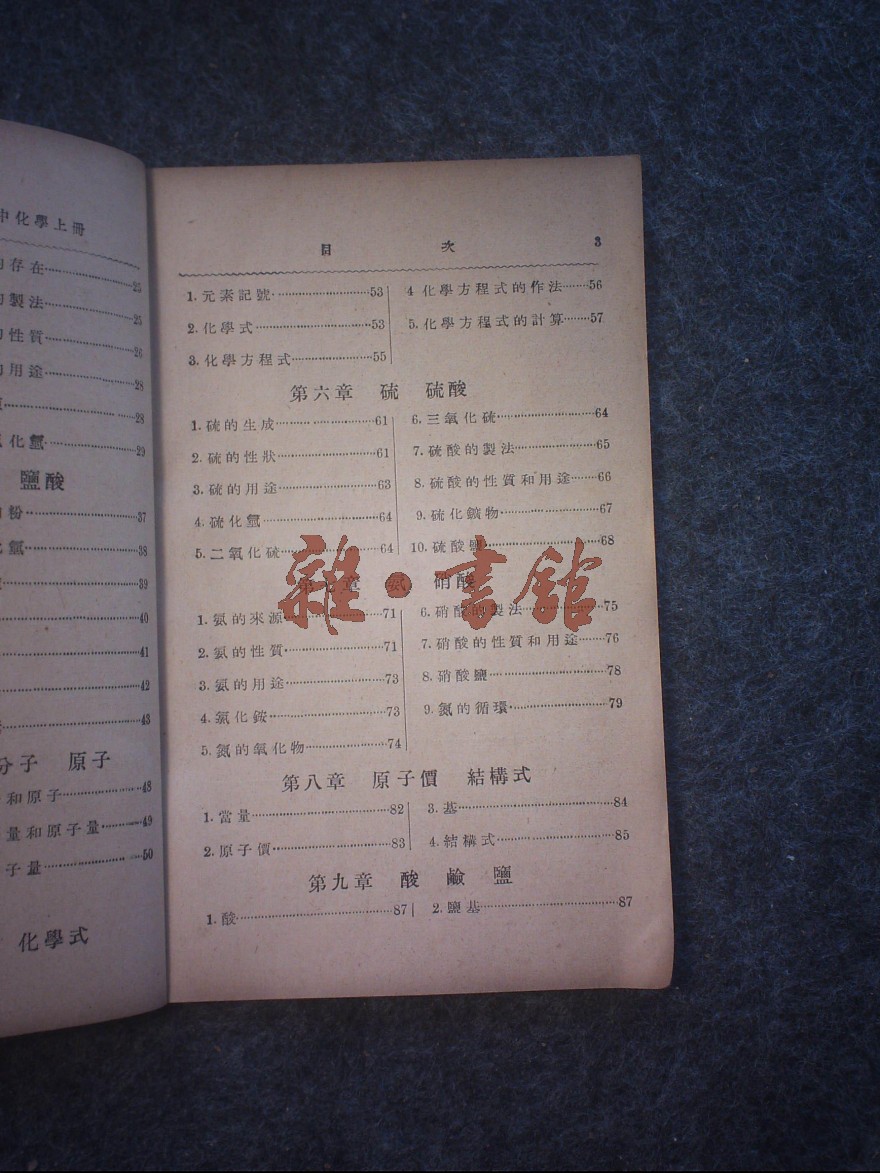 中化學上冊
的存在 25
的製法 25
的性質 26
的用途 28
28
化氫 29
鹽酸
粉 37
化氫 38
39
40
41
42
43
分子 原子
和原子 48
量和原子量 49
子量 50
化學式
目 次 3
1. 元素記號 53
2. 化學式 53
3. 化學方程式 55
4 化學方程式的作法 56
5. 化學方程式的計算 57
第六章 硫 硫酸
1. 硫的生成 61
2. 硫的性狀 61
3. 硫的用途 63
4. 硫化氫 64
5. 二氧化硫 64
6. 三氧化硫 64
7. 硫酸的製法 65
8. 硫酸的性質和用途 66
9. 硫化鑛物 67
10. 硫酸鹽 68
第七章 氨 硝酸
1. 氨的來源 71
2. 氨的性質 71
3. 氨的用途 73
4. 氯化銨 73
5. 氮的氧化物 74
6. 硝酸的製法 75
7. 硝酸的性質和用途 76
8. 硝酸鹽 78
9. 氮的循環 79
第八章 原子價 結構式
1. 當量 82
2. 原子價 83
3. 基 84
4. 結構式 85
第九章 酸 鹼 鹽
1. 酸 87
2. 鹽基 87
雜·書館